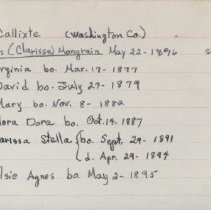 Callixte (Washington Co.)
s (Clarissa) Mongrain May 22-1896 s
irginia bo. Mar. 17-1877
David bo. July 27-1879
Mary bo. Nov. 8-1882
lora Dora bo. Oct. 14-1887
larissa Stella { bo. Sept. 29-1891
d. Apr. 29-1894
lsie Agnes bo May 2-1895